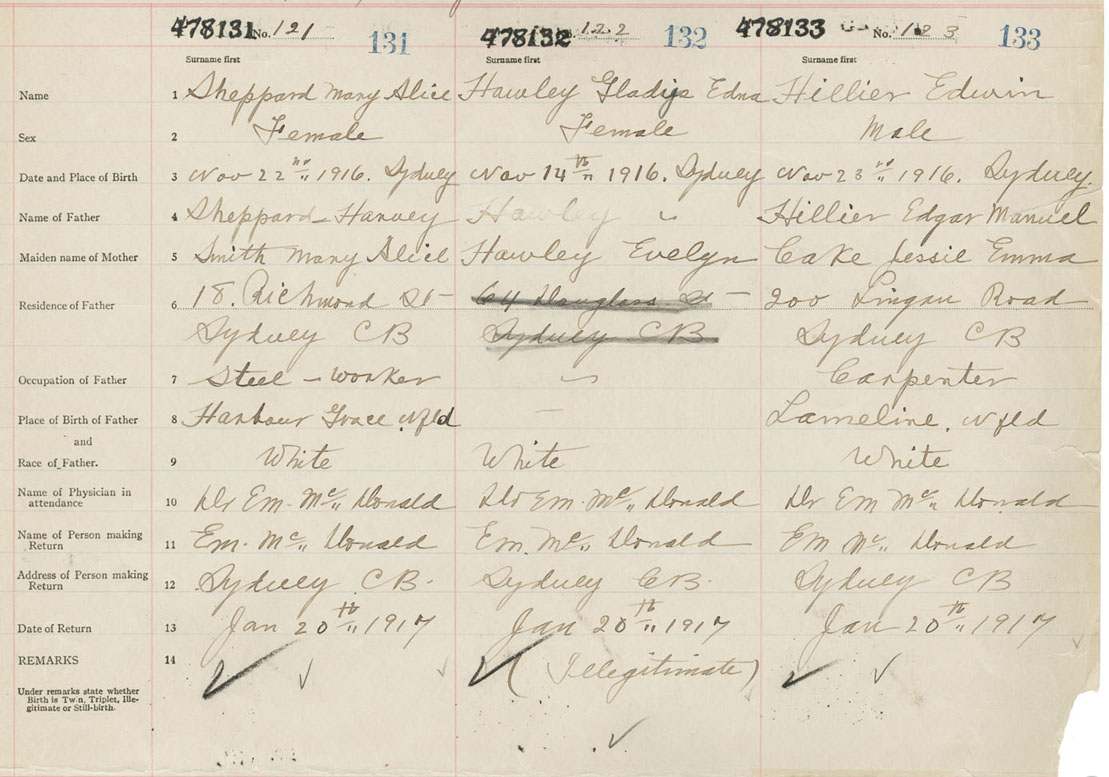 478131 No. 121 131 478132 No. 122 132 478133 No. 123 133
Surname first Surname first Surname first
Name 1 Sheppard Mary Alice Hawley Gladys Edna Hillier Edwin
Sex 2 Female Female Male
Date and Place of Birth 3 Nov 22nd 1916. Sydney Nov 14th 1916. Sydney Nov 23rd 1916. Sydney.
Name of Father 4 Sheppard Harvey Hawley Hillier Edgar Manuel
Maiden name of Mother 5 Smith Mary Alice Hawley Evelyn Cake Jessie Emma
Residence of Father 6 18. Richmond St 64 Douglass St 200 Lingan Road
Sydney CB Sydney CB Sydney CB
Occupation of Father 7 Steel - worker Carpenter
Place of Birth of Father 8 Harbour Grace Nfld — Lameline, Nfld
and
Race of Father. 9 White White White
Name of Physician in attendance 10 Dr Em. Mc Donald Dr Em. Mc Donald Dr Em Mc Donald
Name of Person making Return 11 Em. Mc Donald Em. Mc Donald Em Mc Donald
Address of Person making Return 12 Sydney CB. Sydney CB. Sydney CB
Date of Return 13 Jan 20th 1917 Jan 20th 1917 Jan 20th 1917
REMARKS 14 (Illegitimate)
Under remarks state whether
Birth is Twin, Triplet, Ille-
gitimate or Still-birth.